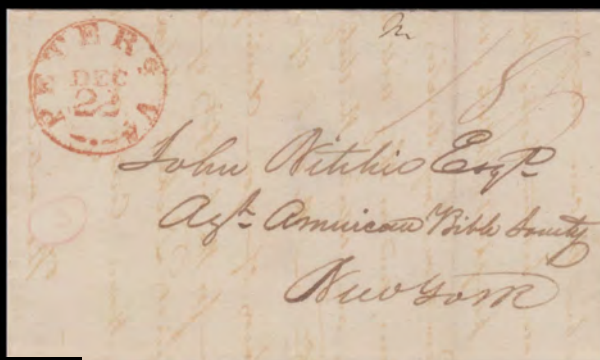 PETERSG VA
DEC
22
18¾
John Nitchie Esqr.
Agt. American Bible Society
New York